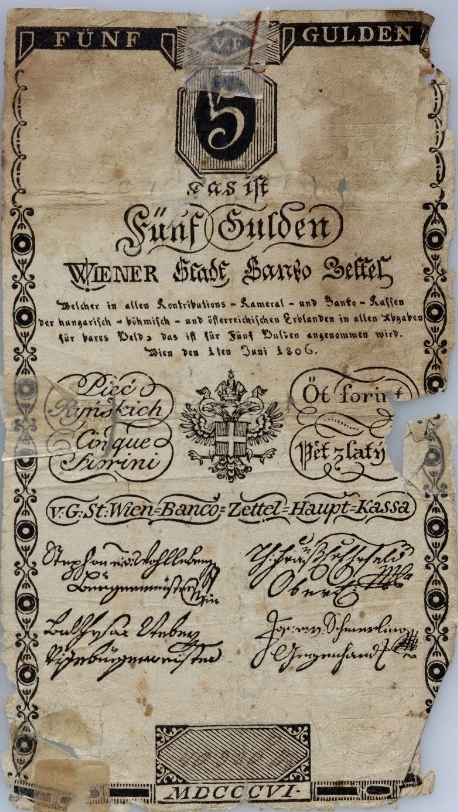 FÜNF V.F GULDEN
5
das ist
Fünf Gulden
WIENER Stadt Banko Zettel
Welcher in allen Kontributions - Kameral - und Banko - Kassen
der hungarisch - böhmisch - und österreichischen Erblanden in allen Abgaben
für bares Geld, das ist für Fünf Gulden angenommen wird.
Wien den 1ten Juni 1806.
Pięć
Ryńskich
Cinque
Fiorini
Öt forint
Pět zlaty
v. G. St. Wien=Banco=Zettel=Haupt=Kassa
Stephan
Bürgermeister
Ober
Schmerling
MDCCCVI.